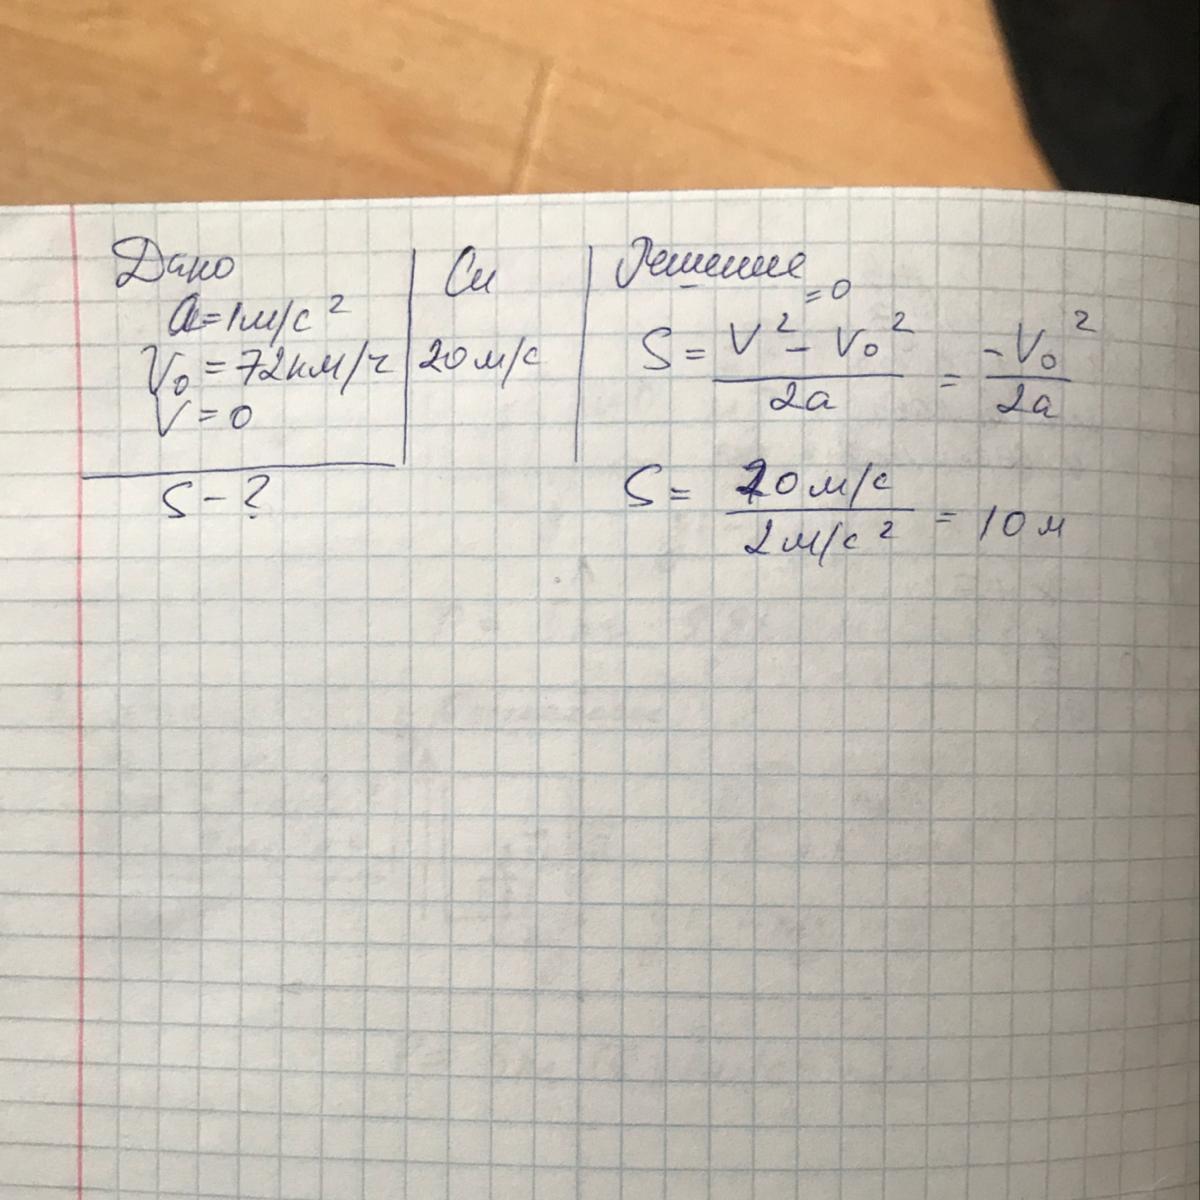 Дано
a=1м/с²
V₀=72км/ч
V=0
S-?
Си
20м/с
Решение
S= V²-V₀² / 2a = -V₀² / 2a
=0
S= 20м/с / 2м/с² = 10м